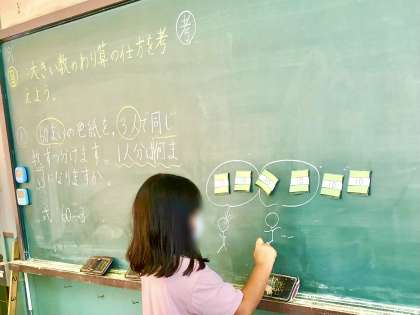 考
め 大きい数のわり算の仕方を考
えよう。
60まいの色紙を、3人で同じ
数ずつ分けます。1人分は何ま
いになりますか。
式 60÷3